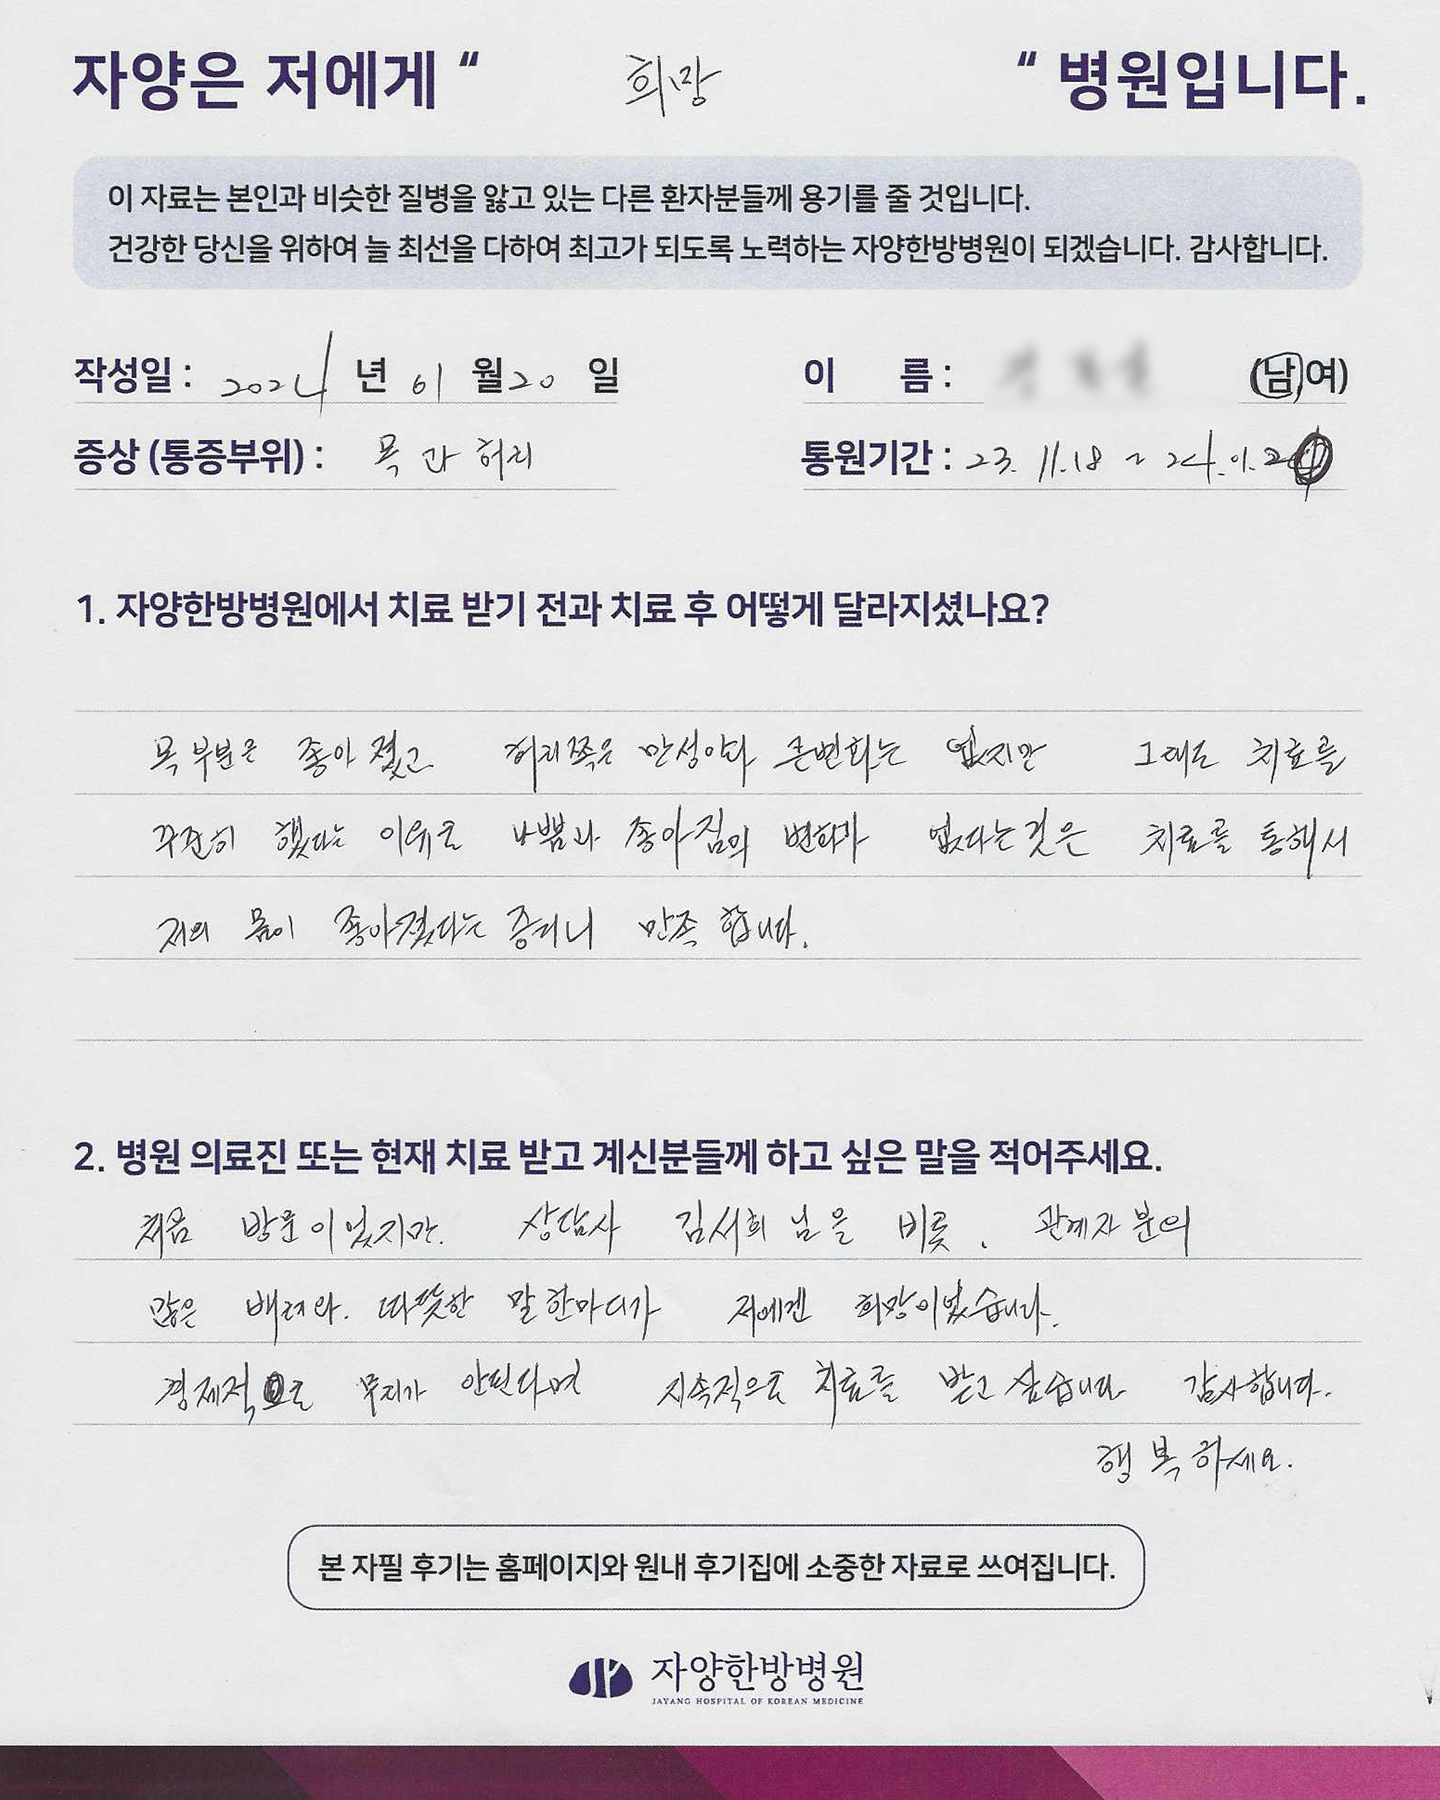 자양은 저에게 “ 희망 “ 병원입니다.
이 자료는 본인과 비슷한 질병을 앓고 있는 다른 환자분들께 용기를 줄 것입니다.
건강한 당신을 위하여 늘 최선을 다하여 최고가 되도록 노력하는 자양한방병원이 되겠습니다. 감사합니다.
작성일 : 2024 년 01 월 20 일 이 름 : (남,여)
증상 (통증부위) : 목과 허리 통원기간 : 23. 11.18 ~ 24.01.20
1. 자양한방병원에서 치료 받기 전과 치료 후 어떻게 달라지셨나요?
목 부분은 좋아졌고 허리쪽은 만성이라 큰변화는 없지만 그래도 치료를
꾸준히 했다는 이유로 나쁨과 좋아짐의 변화가 없다는것은 치료를 통해서
저의 몸이 좋아졌다는 증거니 만족 합니다.
2. 병원 의료진 또는 현재 치료 받고 계신분들께 하고 싶은 말을 적어주세요.
처음 방문이었지만. 상담사 김서희 님을 비롯. 관계자 분의
많은 배려와. 따뜻한 말 한마디가 저에겐 희망이었습니다.
경제적으로 무리가 안된다면 지속적으로 치료를 받고 싶습니다 감사합니다.
행복하세요.
본 자필 후기는 홈페이지와 원내 후기집에 소중한 자료로 쓰여집니다.
자양한방병원
JAYANG HOSPITAL OF KOREAN MEDICINE